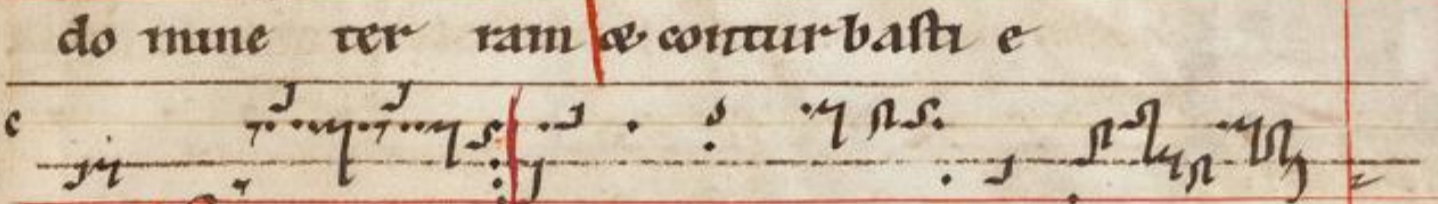 do mine ter ram & conturbasti e
c